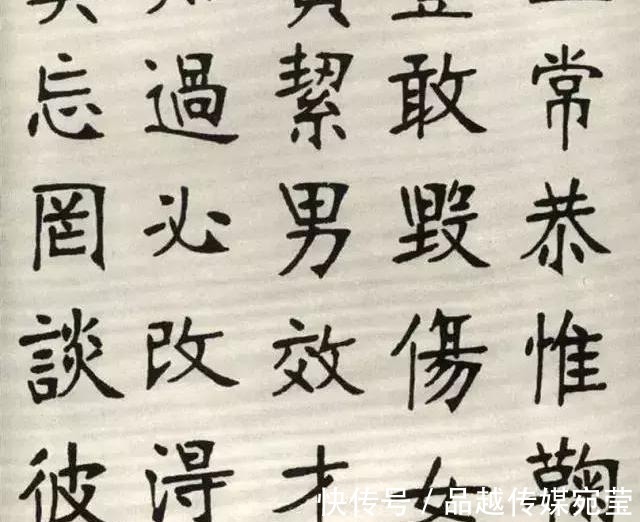 常恭惟鞠
敢毀傷女
絜男效才
過必改得
忘罔談彼
快传号／品越传媒宛莹